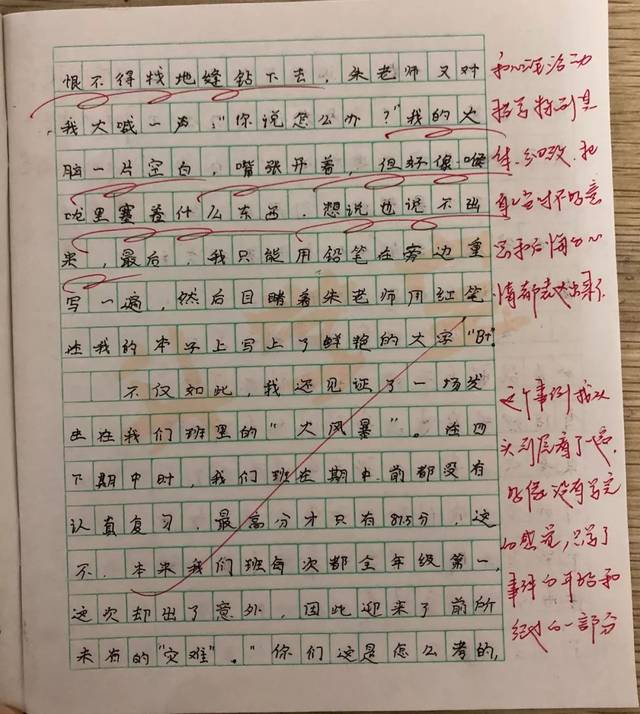 恨不得找地缝钻下去，朱老师又对
我大喊一声："你说怎么办？"我的大
脑一片空白，嘴张开着，但好像喉
咙里塞着什么东西，想说也说不出
来，最后，我只能用铅笔在旁边重
写一遍，然后目睹着朱老师用红笔
在我的本子上写上了鲜艳的大字"B+"
不仅如此，我还见证了一场发
生在我们班里的"大风暴"。在四
下期中时，我们班在期中前都没有
认真复习，最高分才只有87.5分，这
不，本来我们班每次都全年级第一，
这次却出了意外，因此迎来了前所
未有的"灾难"。"你们这是怎么考的，
和心理活动
描写特别具
体、细致，把
自己当时不好意
思和后悔的心
情都表达出来了
这个事例我从
头到尾看了一遍，
好像没有写完
的感觉，只写了
事件的开始和
经过的一部分